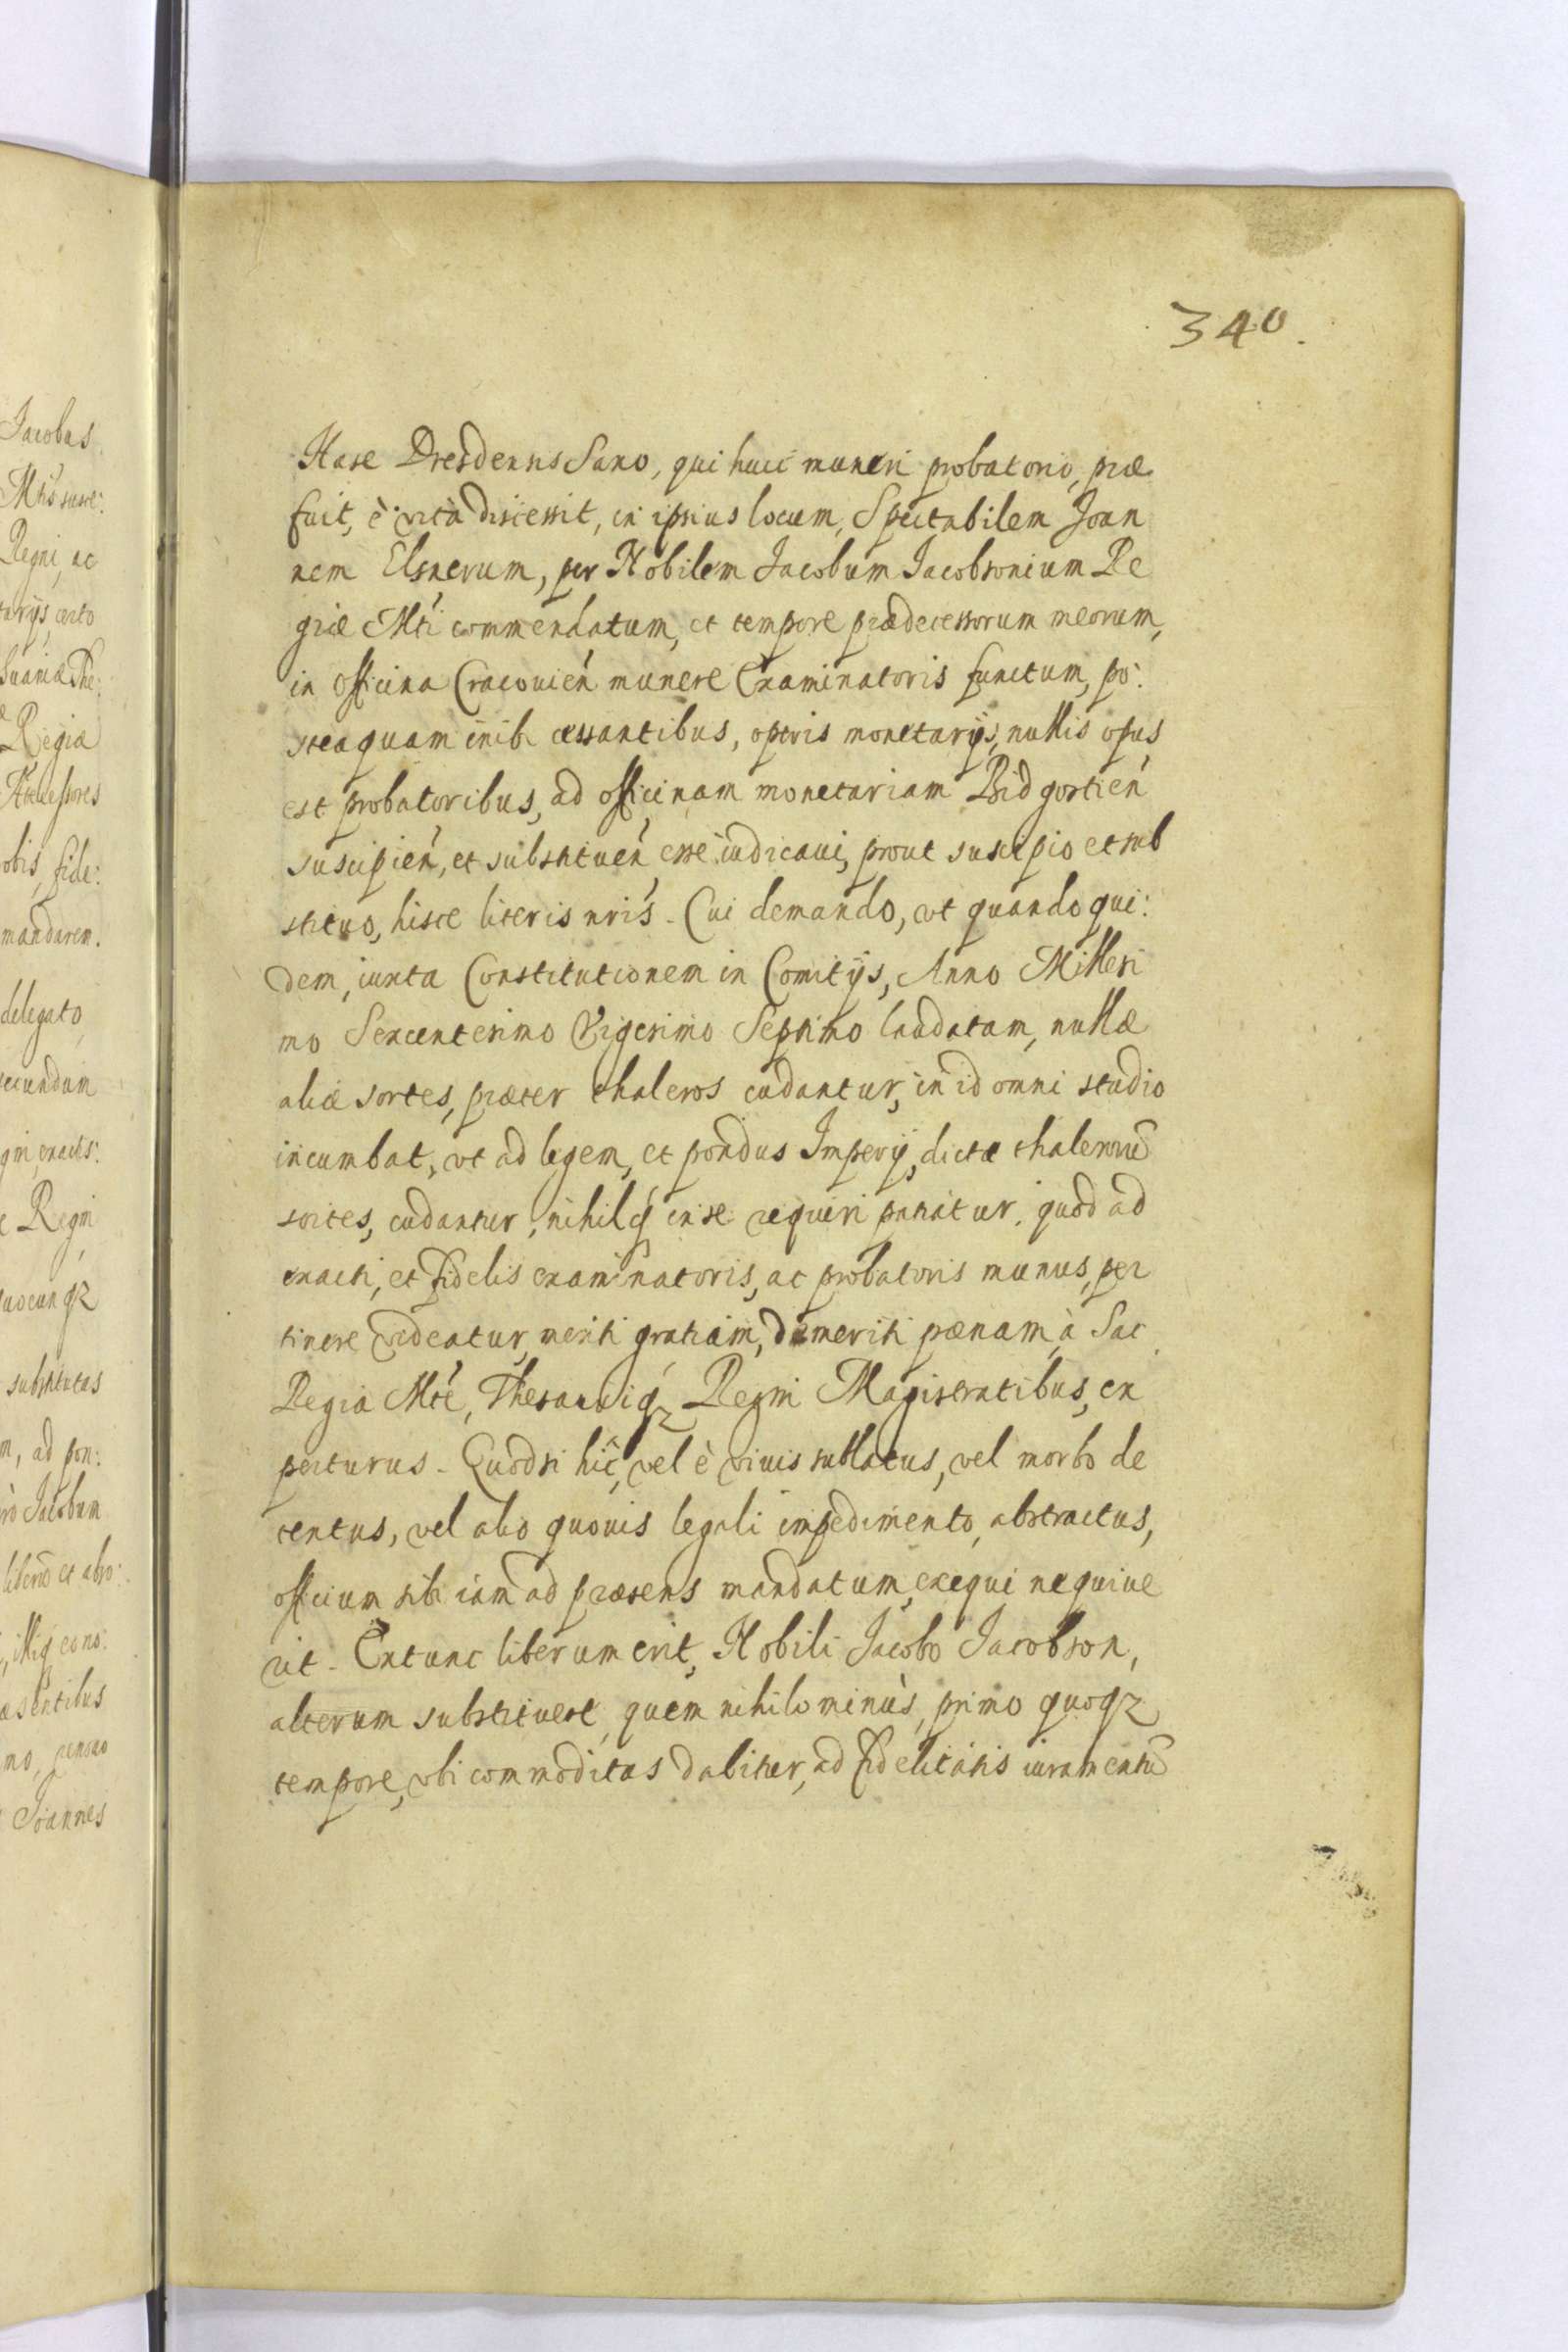 340.
Hase Dresdensis Saxo, qui huic muneri probatorio, præ
fuit, è vità discessit, in ipsius locum, Spectabilem Joan
nem Elsnerum, per Nobilem Jacobum Jacobsonium Re
giæ Mti commendatum, et tempore prædecessorum meorum,
in officina Cracouien munere Examinatoris functum, po:
steaquam inibi cessantibus, operis monetarijs, nullis opus
est probatoribus, ad officinam monetariam Bidgostien
suscipien, et substituen esse iudicaui, prout suscipio et sub
stituo, hisce literis nris. Cui demando, vt quandoqui:
dem, iuxta Constitutionem in Comitijs, Anno Millesi
mo Sexcentesimo Vigesimo Septimo laudatam, nullæ
aliæ sortes, præter thaleros cudantur, in id omni studio
incumbat, vt ad legem, et pondus Imperij, dictæ thalerorū
sortes, cudantur, nihilq in se requiri patiatur, quod ad
exacti, et fidelis examinatoris, ac probatoris munus, per
tinere videatur, meriti gratiam, demeriti pœnam, à Sac
Regia Mte, Thesauriq Regni Magistratibus, ex
pecturus. Quodsi hic, vel è viuis sublatus, vel morbo de
tentus, vel alio quouis legali impedimento, abstractus,
officium sibi iam ad præsens mandatum, exequi nequiue
rit. Extunc liberum erit, Nobili Jacobo Jacobson,
alterum substituere, quem nihilominùs, primo quoq
tempore, vbi commoditas dabitur, ad fidelitatis iuramentū